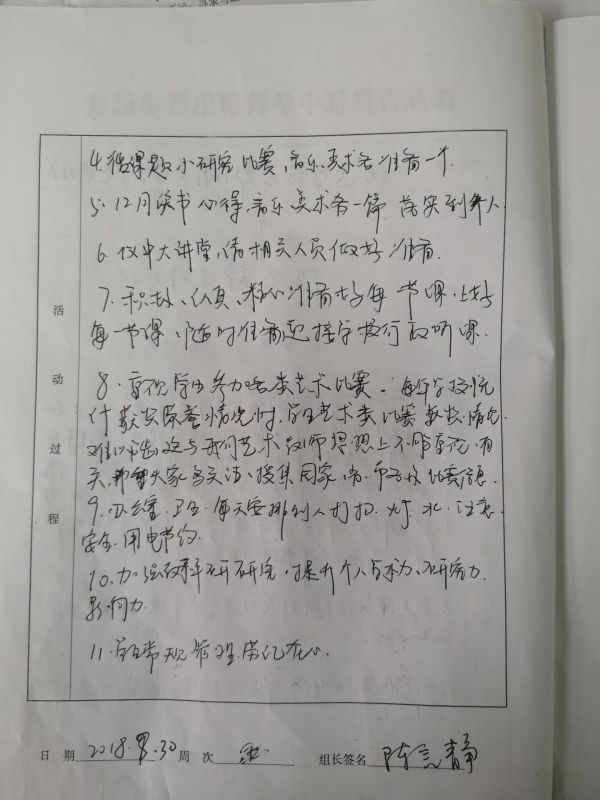 4.微课题小研究比赛,音乐、美术各准备一个.
5.12月读书心得,音乐美术各一篇 落实到个人
6.仪中大讲堂,请相关人员做好准备.
7.积极、认真、精心准备好每一节课,上好
每一节课,随时准备迎接学校行政听课.
8.重视学生参加各类艺术比赛。每年学校统
计获奖 情况时,学生艺术类比赛获奖情况
与我们艺术教师思想上不够重视有
关,希望大家多关注、搜集国家、省、市各级比赛信息.
9.办公室卫生 每天安排到人打扫.灯、水、注意
安全.用电节约.
10.加强教科研研究,提升个人 研究力
影响力.
11. 常规管理 牢记在心.
活动过程
日 期 2018. .30 周 次 组长签名 陈 静